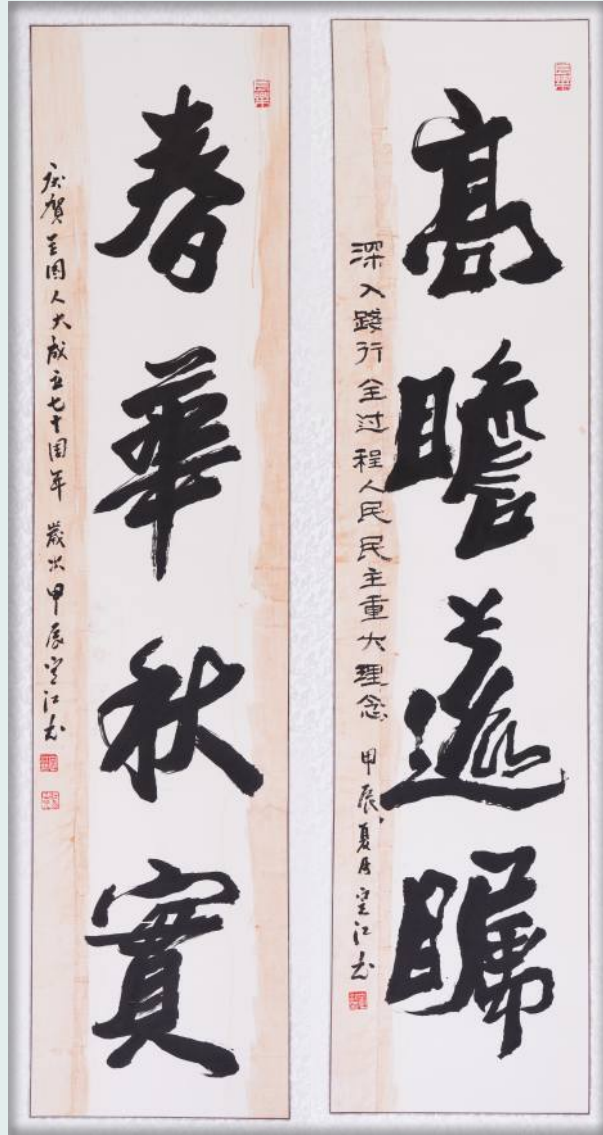 高瞻遠瞩
深入踐行全过程人民民主重大理念 甲辰夏月 江书
春華秋實
庆贺全国人大成立七十周年 歲次甲辰 江书